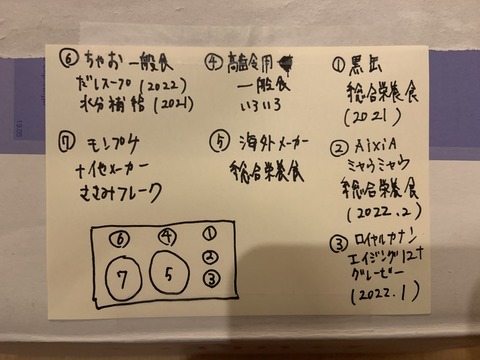 ⑥ ちゃお 一般食
だしスープ (2022)
水分補給 (2021)
④ 高齢食用
一般食
いろいろ
① 黒缶
総合栄養食
(2021)
② AiXiA
ミャウミャウ
総合栄養食
(2022.2)
③ ロイヤルカナン
エイジング12+
グレービー
(2022.1)
⑦ モンプチ
+他メーカー
ささみフレーク
⑤ 海外メーカー
総合栄養食
⑥ ④ ①
②
7 5 ③